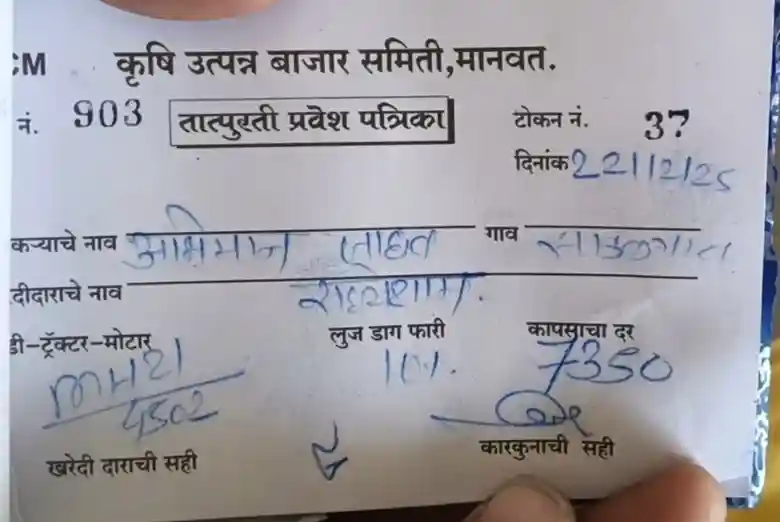 CM कृषि उत्पन्न बाजार समिती,मानवत.
नं. 903 तात्पुरती प्रवेश पत्रिका टोकन नं. 37
दिनांक 22/12/25
कऱ्याचे नाव अभिमान गाव
दीदाराचे नाव
डी-ट्रॅक्टर-मोटार लुज डाग फारी कापसाचा दर
7350
4502
खरेदी दाराची सही कारकुनाची सही